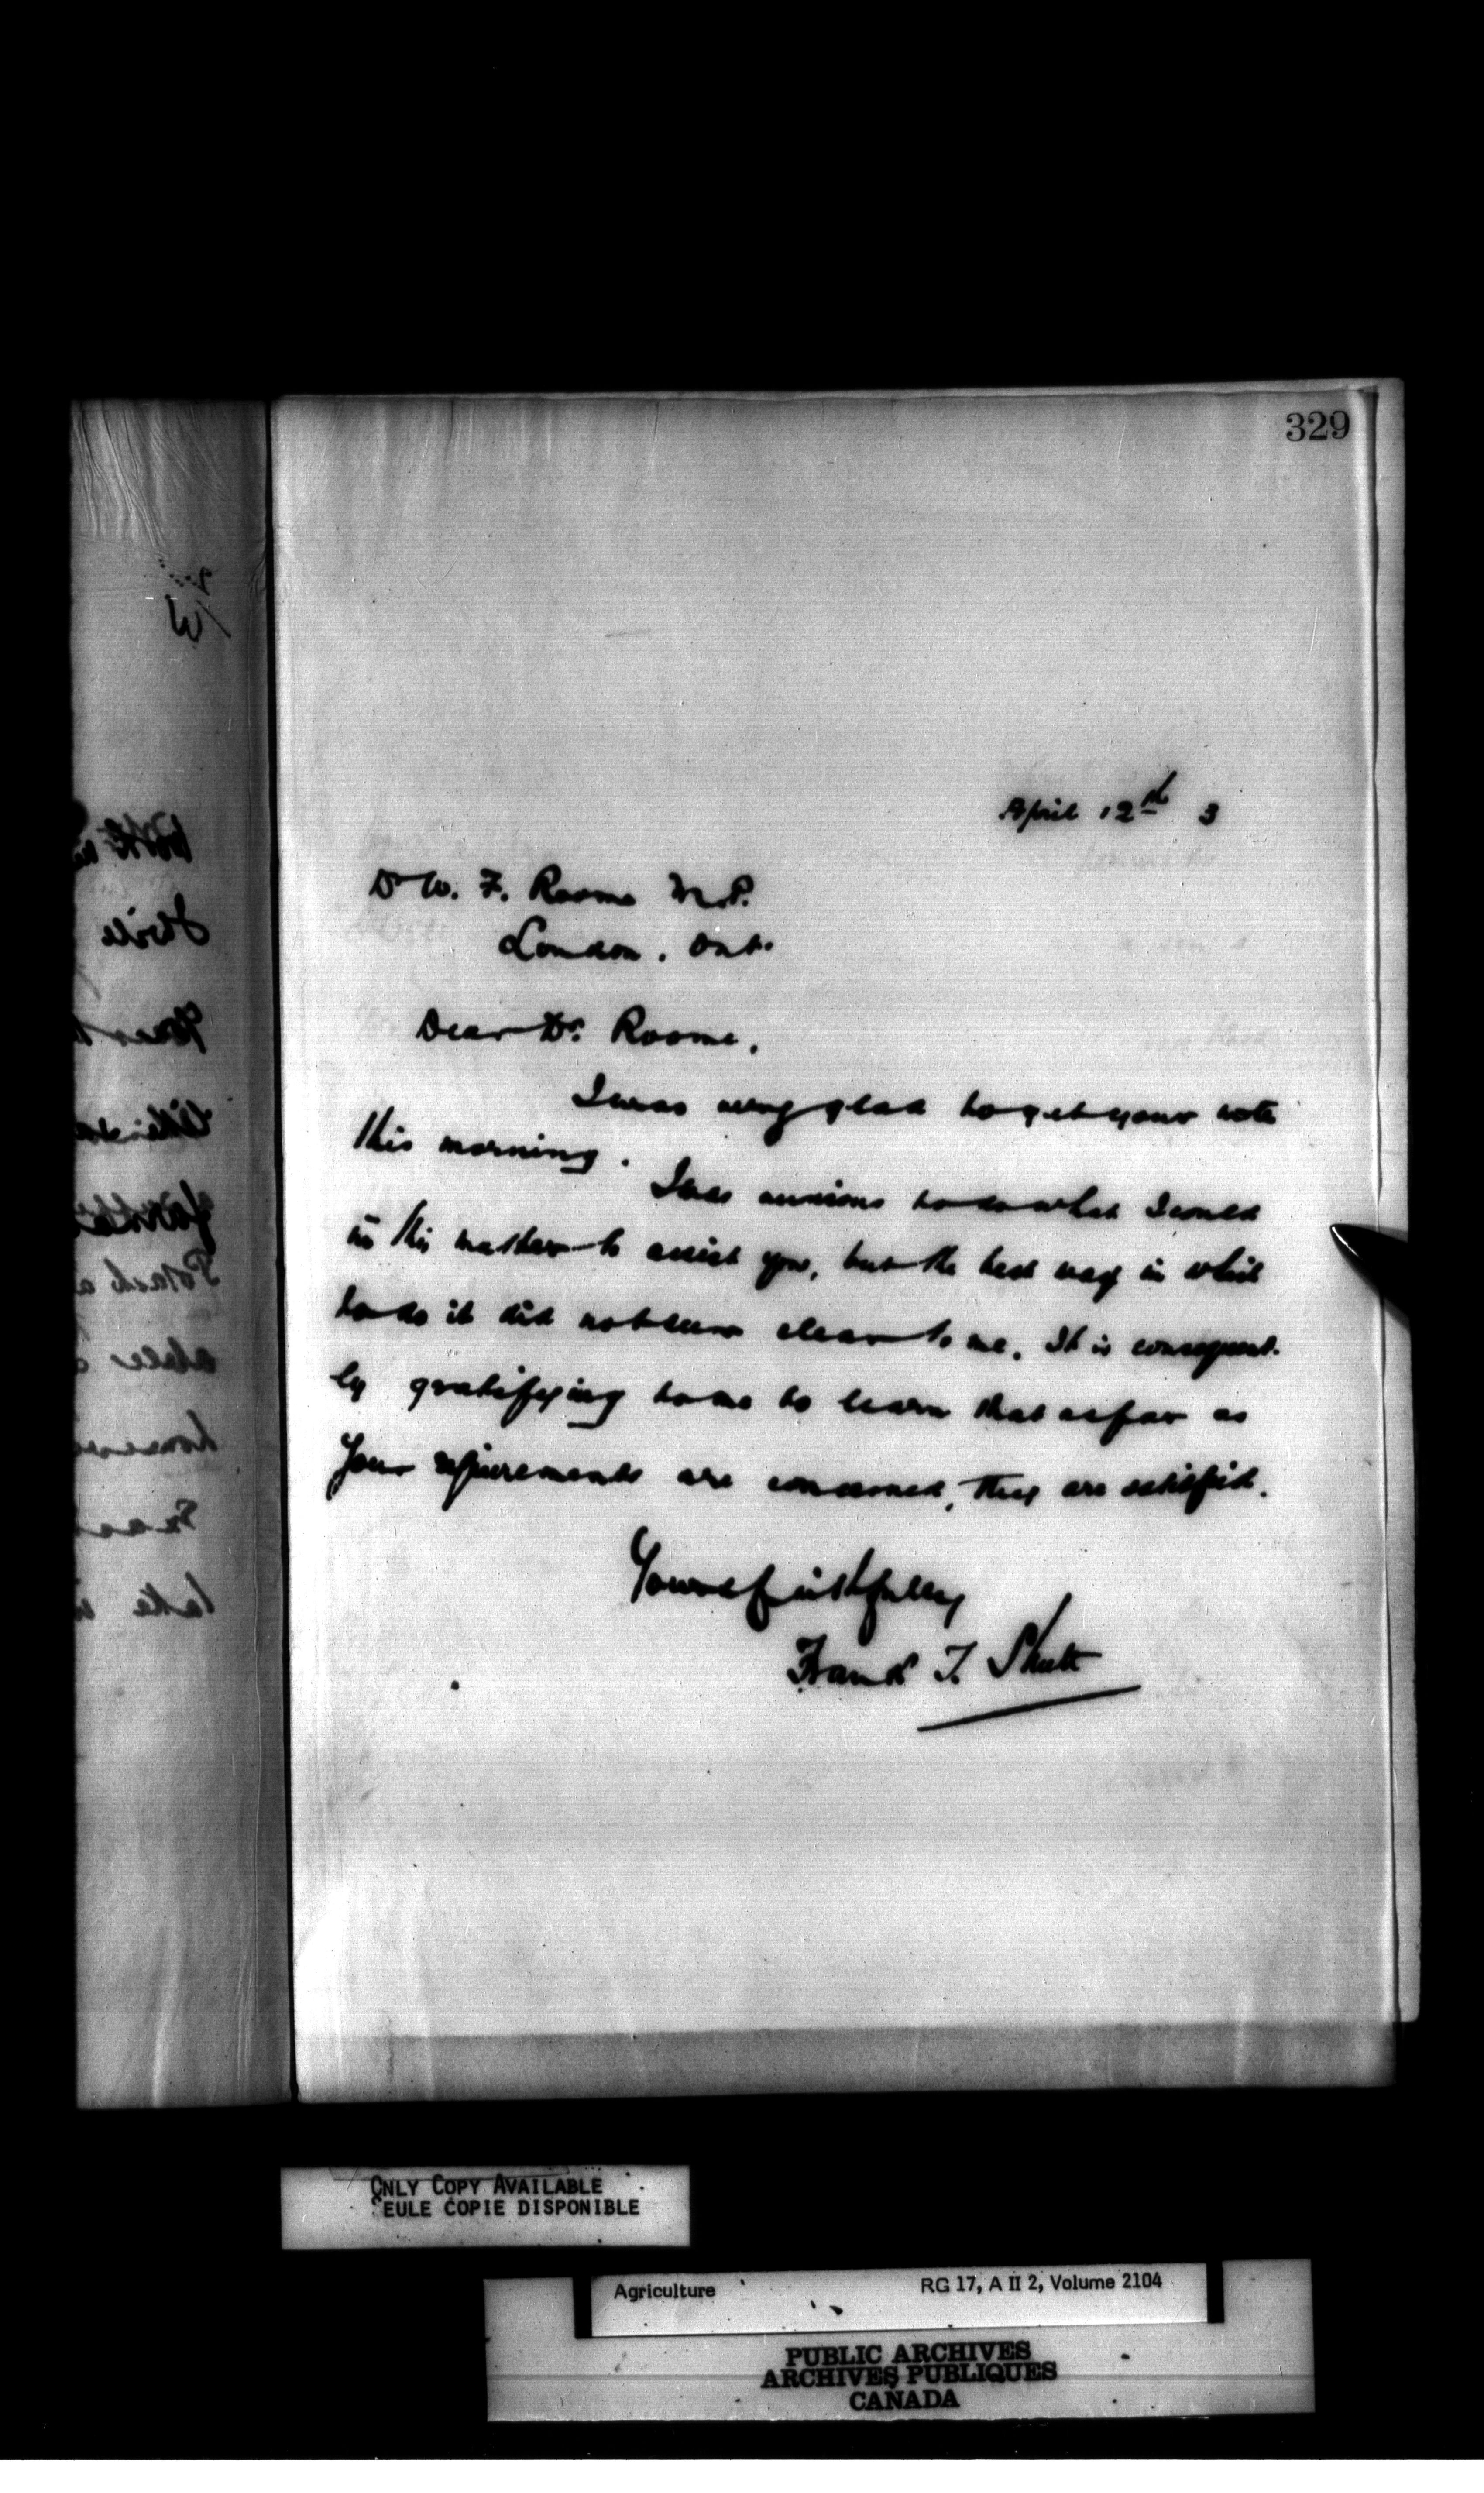 329
April 12th 3
Dr W. F. Roome M.P.
London, Ont.
Dear Dr. Roome,
I was very glad to get your note
this morning.
I was anxious to do what I could
in this matter to assist you, but the best way in which
to do it did not seem clear to me. It is consequent-
ly gratifying to me to learn that as far as
your requirements are concerned, they are satisfied.
Yours faithfully
Frank T. Shutt
ONLY COPY AVAILABLE
SEULE COPIE DISPONIBLE
Agriculture RG 17, A II 2, Volume 2104
PUBLIC ARCHIVES
ARCHIVES PUBLIQUES
CANADA